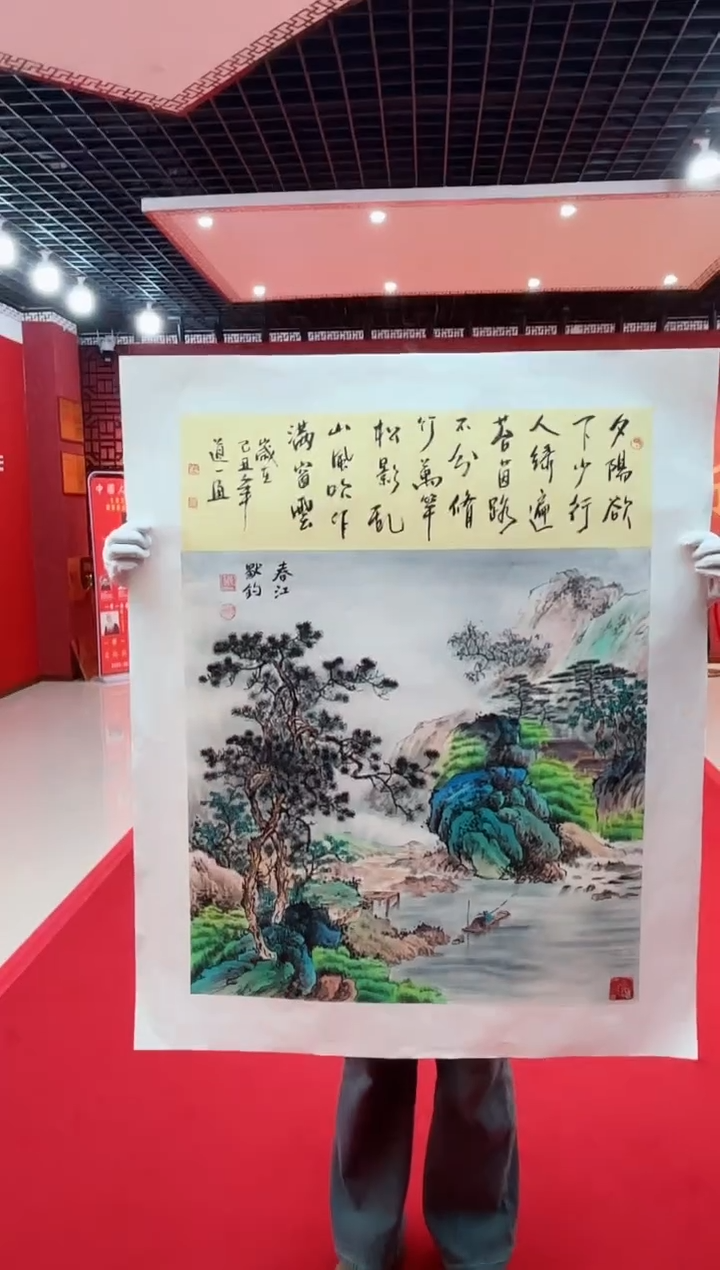 夕陽欲
下少行
人綠遍
苔茵路
不分脩
竹萬竿
松影亂
山風吹作
滿窗雲
歲在
己丑年
道一
春江
默钓
中國人